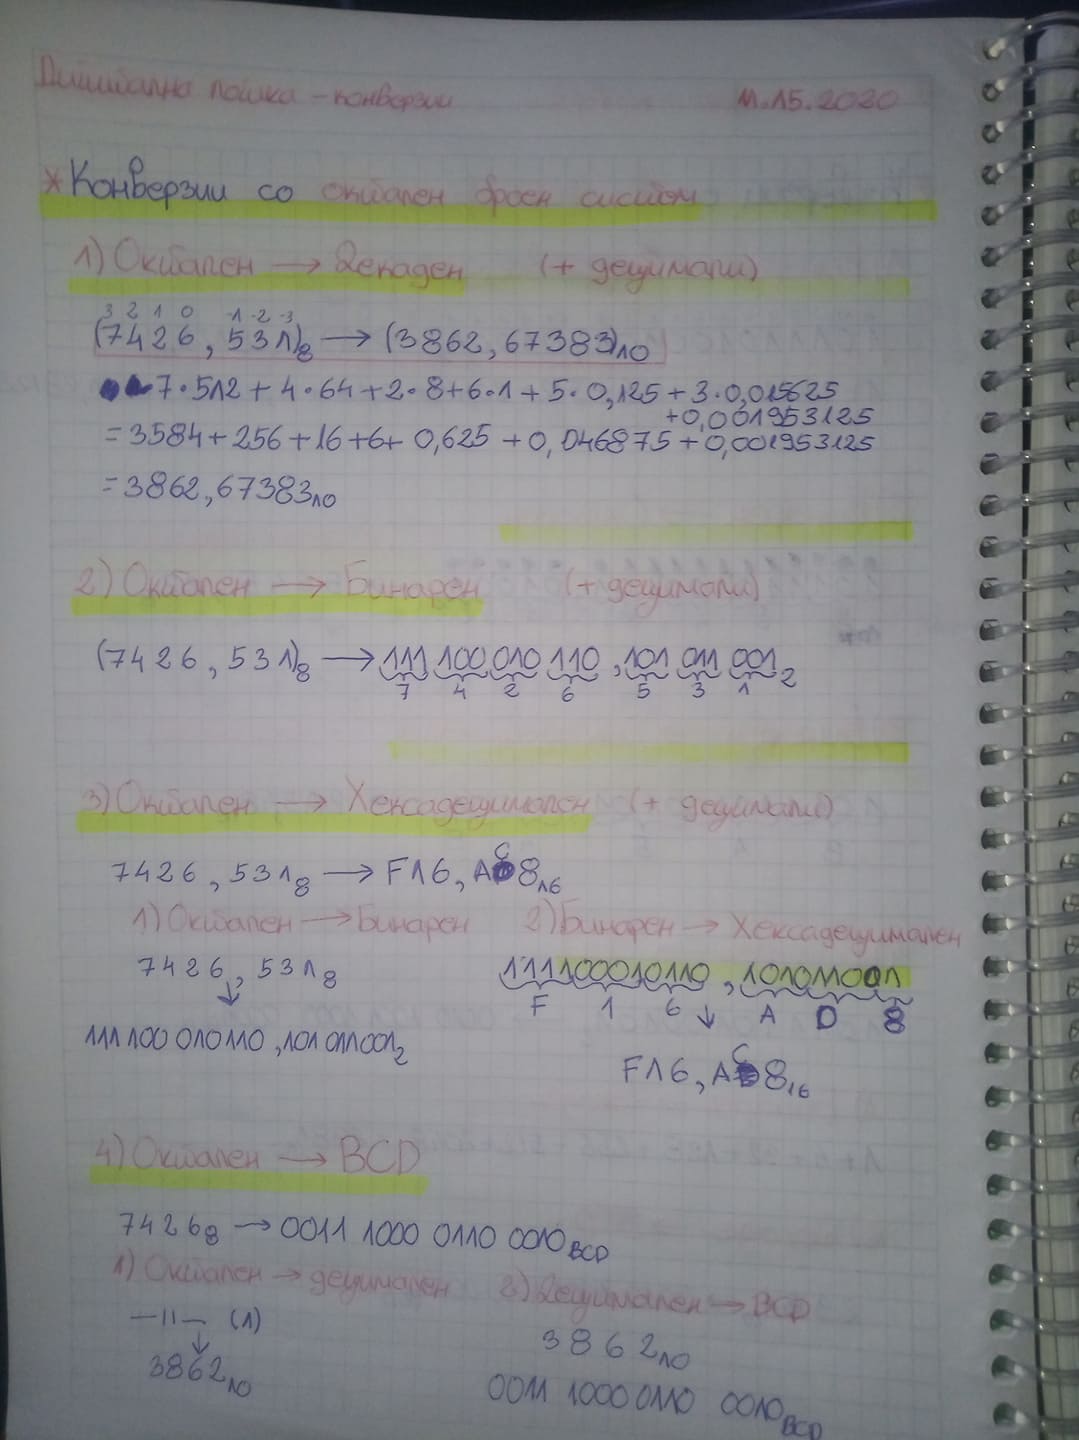 Дигитална логика – конверзии 11.15.2020
* Конверзии со октален броен систем
1) Октален → Декаден (+ децимали)
3 2 1 0 -1 -2 -3
(7426,531)8 → (3862,67383)10
7·512 + 4·64 + 2·8 + 6·1 + 5·0,125 + 3·0,015625
+0,001953125
= 3584 + 256 + 16 + 6 + 0,625 + 0,046875 + 0,001953125
= 3862,6738310
2) Октален → Бинарен (+ децимали)
(7426,531)8 → 111 100 010 110 ,101 011 001 2
7 4 2 6 5 3 1
3) Октален → Хексадецимален (+ децимали)
7426,5318 → F16,AC816
1) Октален → Бинарен 2) Бинарен → Хексадецимален
7426,5318 111100010110 ,101011001
↓ F 1 6 ↓ A D 8
111 100 010110 ,101 011 0012
F16,AC816
4) Октален → BCD
74268 → 0011 1000 0110 0010BCD
1) Октален → децимален 2) Децимален → BCD
—11— (1) 386210
↓
386210 0011 1000 0110 0010BCD